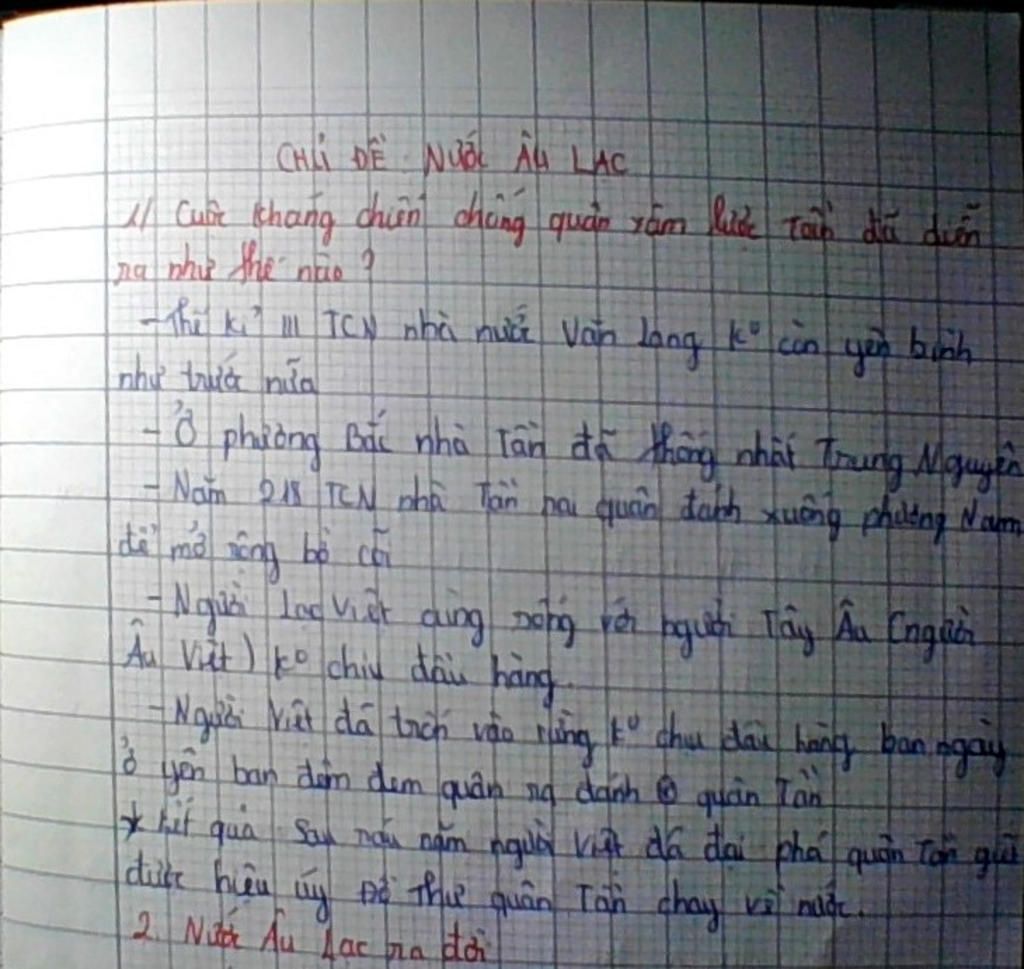 CHỦ ĐỀ NƯỚC ÂU LẠC
1/ Cuộc kháng chiến chống quân xâm lược Tần đã diễn
ra như thế nào?
- Thế kỉ III TCN nhà nước Văn Lang k° còn yên bình
như trước nữa
- Ở phương Bắc nhà Tần đã thống nhất Trung Nguyên
- Năm 218 TCN nhà Tần quân đánh xuống phương Nam
để mở rộng bờ cõi
- Người Lạc Việt cùng với người Tây Âu (người
Âu Việt) k° chịu đầu hàng.
- Người Việt đã trốn vào rừng k° chịu đầu hàng ban ngày
ở yên ban đêm đem quân ra đánh quân Tần
* kết quả sau năm người Việt đã đại phá quân Tần giết
được hiệu úy Đồ Thư quân Tần chạy về nước.
2. Nước Âu Lạc ra đời